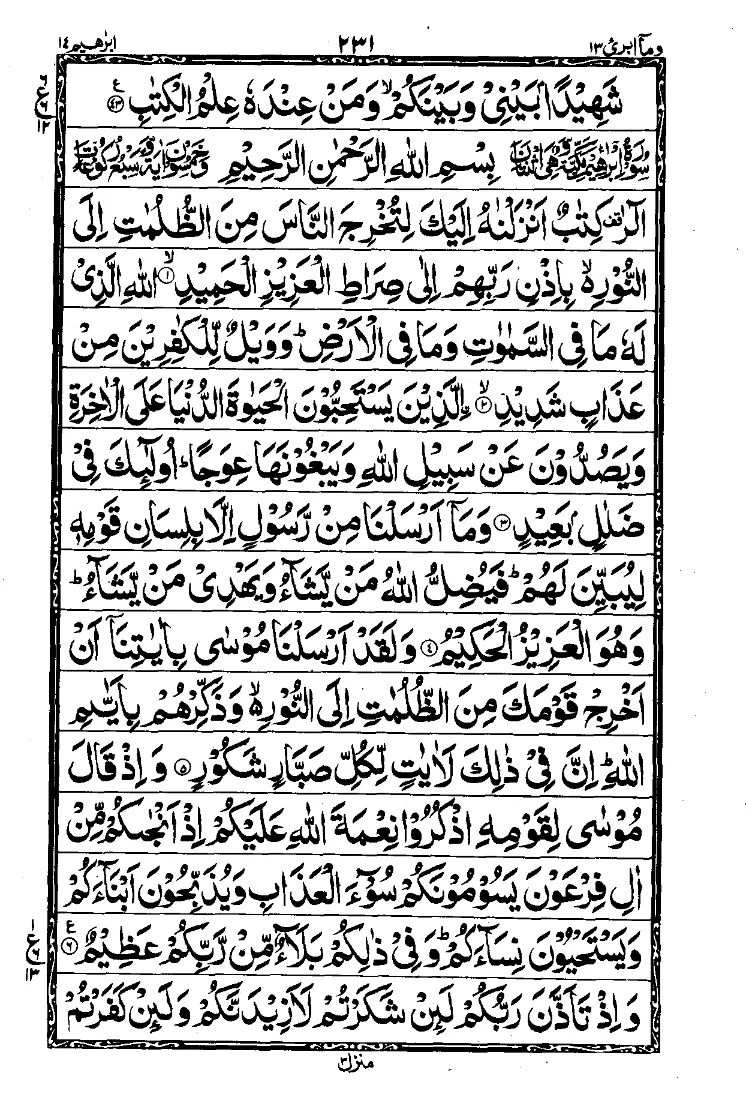 ابرٰهیم ۱۴ ۲۳۱ ومآ ابرئ ۱۳
شَهِيْدًۢا بَيْنِيْ وَبَيْنَكُمْ ۙ وَمَنْ عِنْدَهٗ عِلْمُ الْكِتٰبِ ۴۳ ع
سُوْرَةُ اِبْرٰهِيْمَ مَكِّيَّةٌ وَّهِيَ اثْنَتَانِ بِسْمِ اللهِ الرَّحْمٰنِ الرَّحِيْمِ وَخَمْسُوْنَ اٰيَةً وَّسَبْعُ رُكُوْعَاتٍ
الٓرٰ ۫ كِتٰبٌ اَنْزَلْنٰهُ اِلَيْكَ لِتُخْرِجَ النَّاسَ مِنَ الظُّلُمٰتِ اِلَى
النُّوْرِ ۙ۬ بِاِذْنِ رَبِّهِمْ اِلٰى صِرَاطِ الْعَزِيْزِ الْحَمِيْدِ ۙ ۱ اللهِ الَّذِيْ
لَهٗ مَا فِي السَّمٰوٰتِ وَمَا فِي الْاَرْضِ ؕ وَوَيْلٌ لِّلْكٰفِرِيْنَ مِنْ
عَذَابٍ شَدِيْدِ ۙ ۲ اِۨلَّذِيْنَ يَسْتَحِبُّوْنَ الْحَيٰوةَ الدُّنْيَا عَلَى الْاٰخِرَةِ
وَيَصُدُّوْنَ عَنْ سَبِيْلِ اللهِ وَيَبْغُوْنَهَا عِوَجًا ؕ اُولٰٓئِكَ فِيْ
ضَلٰلٍۭ بَعِيْدٍ ۳ وَمَآ اَرْسَلْنَا مِنْ رَّسُوْلٍ اِلَّا بِلِسَانِ قَوْمِهٖ
لِيُبَيِّنَ لَهُمْ ؕ فَيُضِلُّ اللهُ مَنْ يَّشَآءُ وَيَهْدِيْ مَنْ يَّشَآءُ ؕ
وَهُوَ الْعَزِيْزُ الْحَكِيْمُ ۴ وَلَقَدْ اَرْسَلْنَا مُوْسٰى بِاٰيٰتِنَآ اَنْ
اَخْرِجْ قَوْمَكَ مِنَ الظُّلُمٰتِ اِلَى النُّوْرِ ۙ۬ وَذَكِّرْهُمْ بِاَيّٰىمِ
اللهِ ؕ اِنَّ فِيْ ذٰلِكَ لَاٰيٰتٍ لِّكُلِّ صَبَّارٍ شَكُوْرٍ ۵ وَاِذْ قَالَ
مُوْسٰى لِقَوْمِهِ اذْكُرُوْا نِعْمَةَ اللهِ عَلَيْكُمْ اِذْ اَنْجٰىكُمْ مِّنْ
اٰلِ فِرْعَوْنَ يَسُوْمُوْنَكُمْ سُوْٓءَ الْعَذَابِ وَيُذَبِّحُوْنَ اَبْنَآءَكُمْ
وَيَسْتَحْيُوْنَ نِسَآءَكُمْ ؕ وَفِيْ ذٰلِكُمْ بَلَآءٌ مِّنْ رَّبِّكُمْ عَظِيْمٌ ۶ ع
وَاِذْ تَاَذَّنَ رَبُّكُمْ لَئِنْ شَكَرْتُمْ لَاَزِيْدَنَّكُمْ وَلَئِنْ كَفَرْتُمْ
منزل ۳
۶ ع ۶ ۱۲
۱ ع ۶ ۱۳